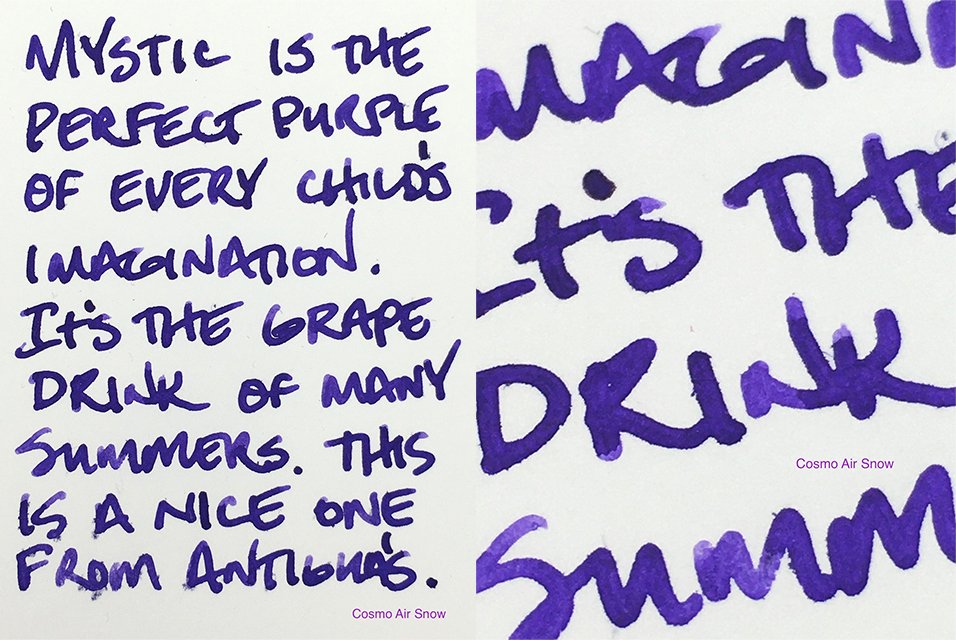 MYSTIC IS THE
PERFECT PURPLE
OF EVERY CHILD'S
IMAGINATION.
It's THE GRAPE
DRINK OF MANY
SUMMERS. THIS
IS A NICE ONE
FROM ANTIGUA'S.
Cosmo Air Snow
IMAGINA
It's THE
DRINK
Cosmo Air Snow
SUMM